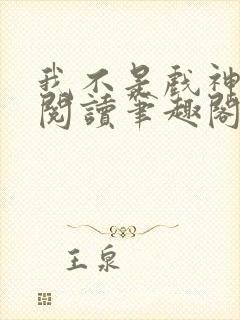 我不是戲神
閱讀筆趣閣
王泉